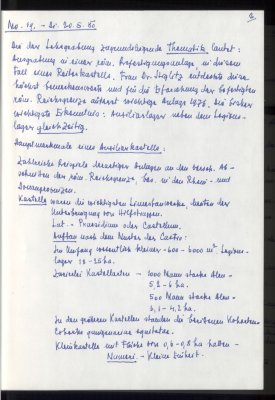 6
No. 19. - 20. 5. 80
Die der Lehrgrabung zugrundeliegende Thematik lautet:
Ausgrabung in einer röm. Befestigungsanlage, in diesem
Fall eines Reiterkastells. Frau Dr. Stiglitz entdeckte diese
höchst bemerkenswerte und für die Erforschung der
röm. Reichsgrenze äußerst wichtige Anlage 1978. Die bisher
wichtigste Erkenntnis: Auxiliarlager neben dem Legions-
lager gleichzeitig.
Hauptmerkmale eines Auxiliarkastells:
Zahlreiche Beispiele derartiger Anlagen an den versch. Ab-
schnitten der röm. Reichsgrenze, bes. in den Rhein- und
Donauprovinzen.
Kastelle waren die wichtigsten Limesbauwerke, dienten der
Unterbringung von Hilfstruppen.
Lat. - Praesidium oder Castellum.
Aufbau nach dem Muster der Castra:
Im Umfang wesentlich kleiner - 600 - 6000 m² Legions-
lager 18 - 25 ha.
Zweierlei Kastellarten - 1000 Mann starke Alen -
5,2 - 6 ha.
500 Mann starke Alen -
3,1 - 4,2 ha.
In den größeren Kastellen standen die berittenen Kohorten -
Cohortes quingenariae equitatae.
Kleinkastelle mit Fläche von 0,6 - 0,8 ha hatten -
Numeri. - kleine Einheit.